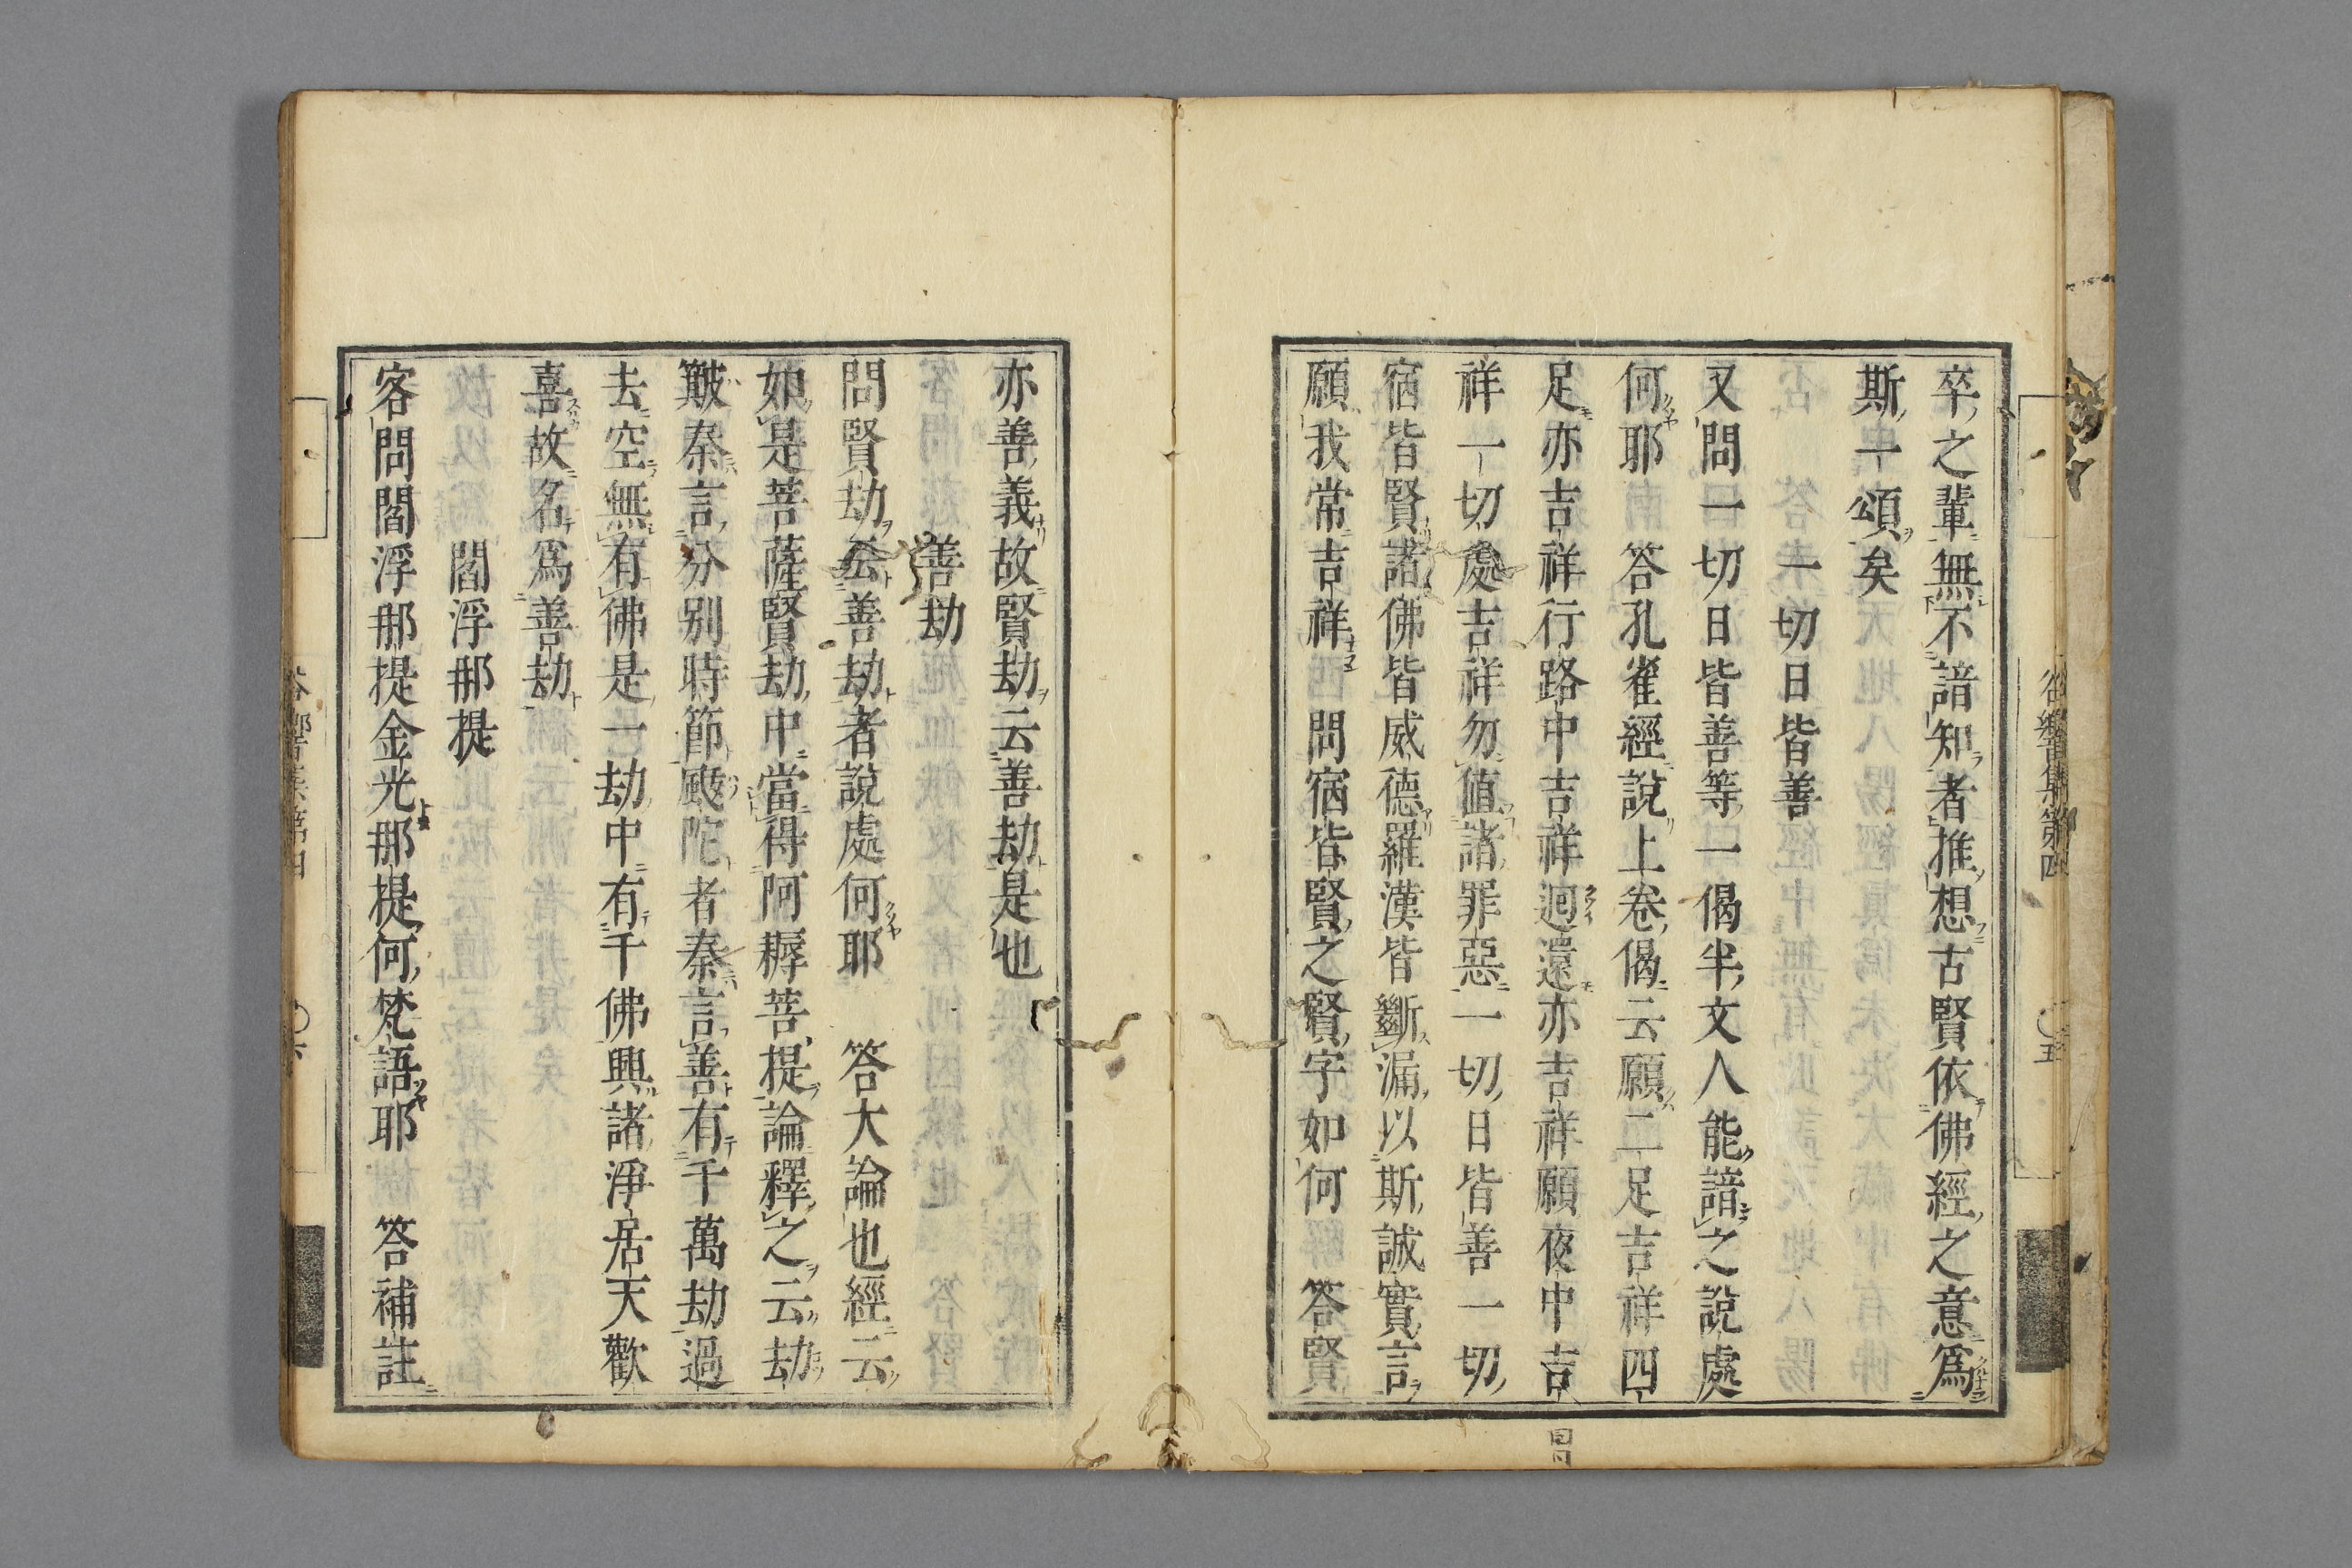 卒之輩無不諳知者推想古賢依佛經之意爲
斯一頌矣
一切日皆善
又問一切日皆善等一偈半文人能諳之說處
何耶　答孔雀經說上卷偈云願二足吉祥四
足亦吉祥行路中吉祥迴還亦吉祥願夜中吉
祥一切處吉祥勿値諸罪惡一切日皆善一切
宿皆賢諸佛皆威德羅漢皆斷漏以斯誠實言
願我常吉祥　問宿皆賢之賢字如何　答賢
亦善義故賢劫云善劫是也
善劫
問賢劫云善劫者說處何耶　答大論也經云
如是菩薩賢劫中當得阿耨菩提論釋之云劫
簸秦言分別時節颰陀者秦言善有千萬劫過
去空無有佛是一劫中有千佛興諸淨居天歡
喜故名爲善劫
閻浮那提
客問閻浮那提金光那提何梵語耶　答補註
答響集第四
〇五